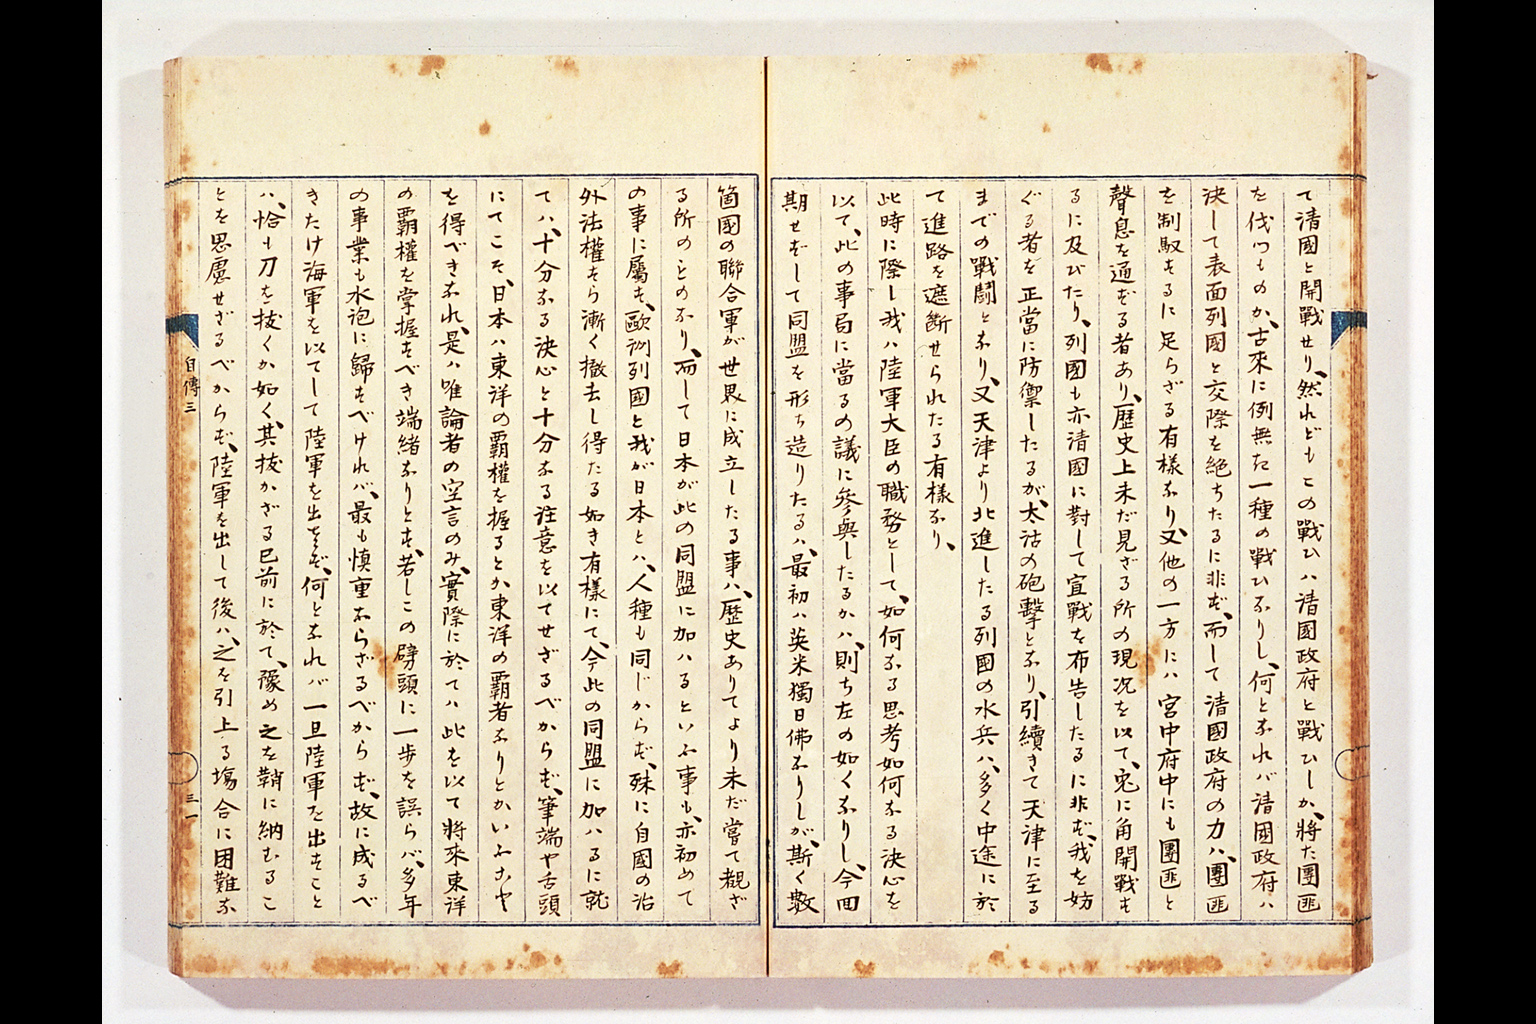 て清國と開戰せり、然れどもこの戰ひハ清國政府と戰ひしか、將た團匪
を伐つものか、古來に例無き一種の戰ひなりし、何となれバ清國政府ハ
決して表面列國と交際を絶ちたるに非ず、而して清國政府の力ハ、團匪
を制馭するに足らざる有樣なり、又他の一方にハ宮中府中にも團匪と
聲息を通ずる者あり、歴史上未だ見ざる所の現況を以て、兎に角開戰す
るに及びたり、列國も亦清國に對して宣戰を布告したるに非ず、我を妨
ぐる者を正當に防禦したるが、太沽の砲擊となり、引續きて天津に至る
までの戰鬪となり、又天津より北進したる列國の水兵ハ、多く中途に於
て進路を遮斷せられたる有樣なり、
此時に際し我ハ陸軍大臣の職務として、如何なる思考如何なる決心を
以て、此の事局に當るの議に參與したるかハ、則ち左の如くなりし、今回
期せずして同盟を形ち造りたるハ、最初ハ英米獨日佛なりしが、斯く數
箇國の聯合軍が世界に成立したる事ハ、歴史ありてより未だ嘗て觀ざ
る所のものなり、而して日本が此の同盟に加ハるといふ事も、亦初めて
の事に屬す、歐洲列國と我が日本とハ、人種も同じからず、殊に自國の治
外法權すら漸く撤去し得たる如き有樣にて、今此の同盟に加ハるに就
てハ、十分なる決心と十分なる注意を以てせざるべからず、筆端や舌頭
にてこそ、日本ハ東洋の覇權を握るとか東洋の覇者なりとかいふことや
を得べきなれ、是ハ唯論者の空言のみ、實際に於てハ此を以て將來東洋
の覇權を掌握すべき端緒なりとす、若しこの劈頭に一歩を誤らバ、多年
の事業も水泡に歸すべけれバ、最も愼重ならざるべからず、故に成るべ
きたけ海軍を以てして陸軍を出さず、何となれバ一旦陸軍を出すこと
ハ、恰も刀を拔くか如く、其拔かざる已前に於て、豫め之を鞘に納むるこ
とを思慮せざるべからず、陸軍を出して後ハ、之を引上る塲合に困難な
自傳三
三一